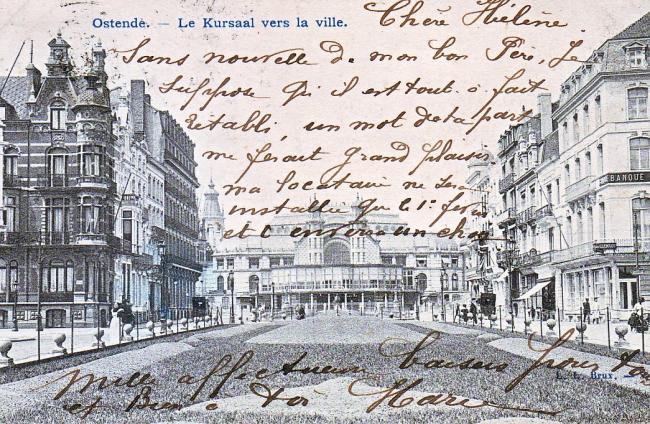 Ostende. — Le Kursaal vers la ville.
Chère Hélène
Sans nouvelle de mon bon Père, Je
suppose qu'il est tout à fait
rétabli, un mot de ta part
me ferait grand plaisir
ma locataire ne sera
installée que le 1er
et t'enverra un
BANQUE
Mille affectueux baisers pour toi
et Bien à toi Marie
L. L. Brux.